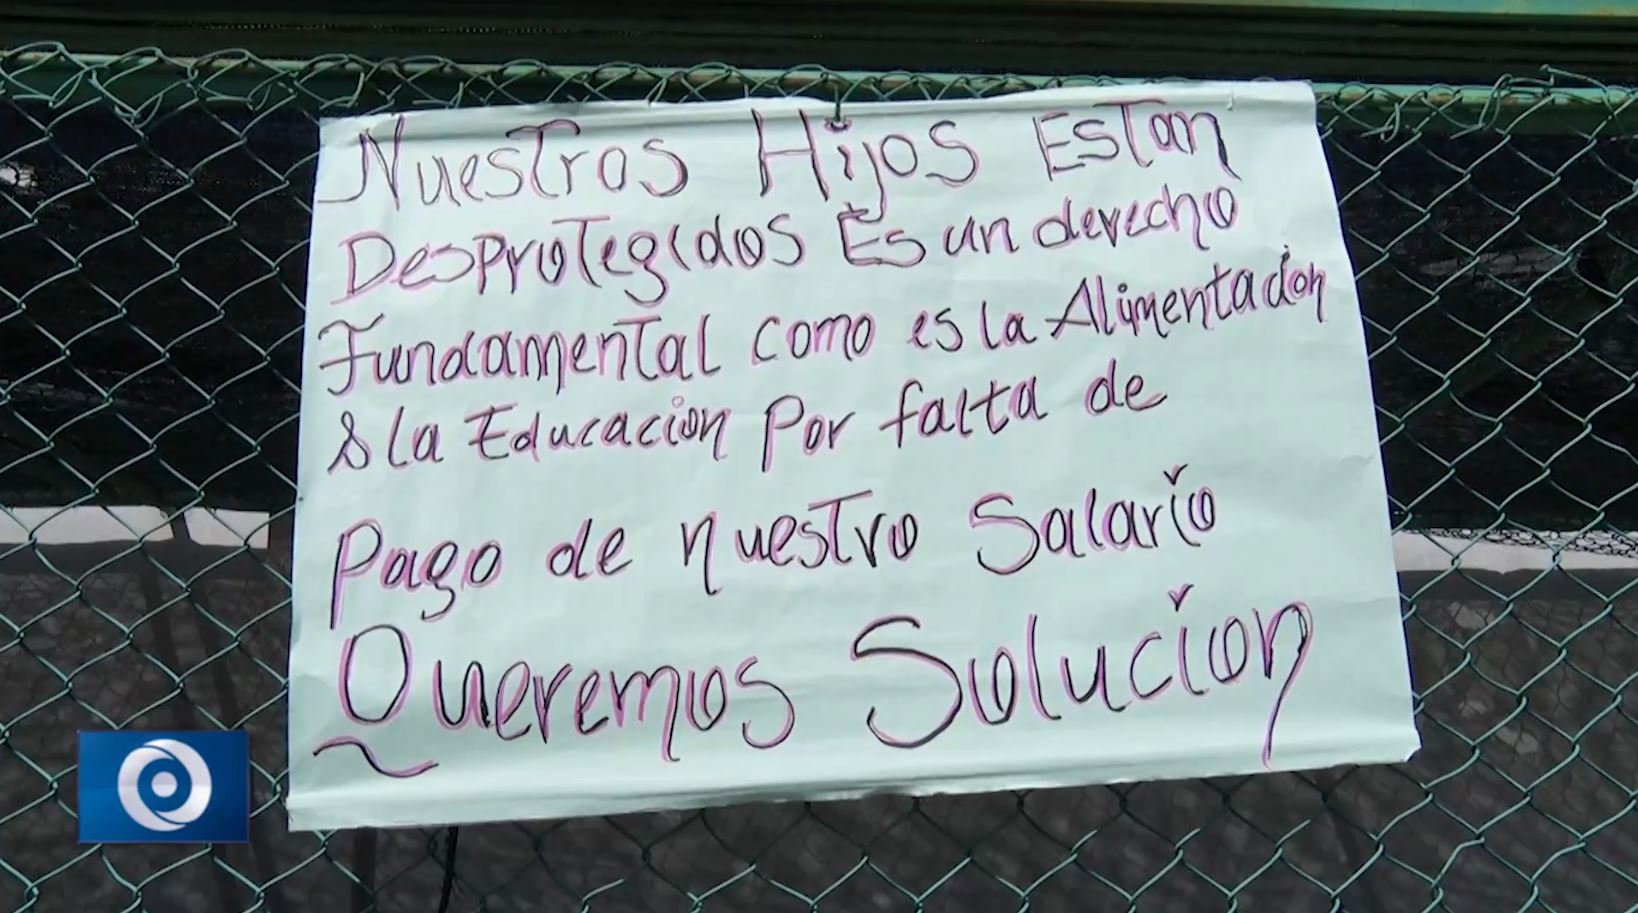 Nuestros Hijos Estan
Desprotegidos Es un derecho
Fundamental como es la Alimentación
& la Educacion Por falta de
Pago de nuestro Salario
Queremos Solucion